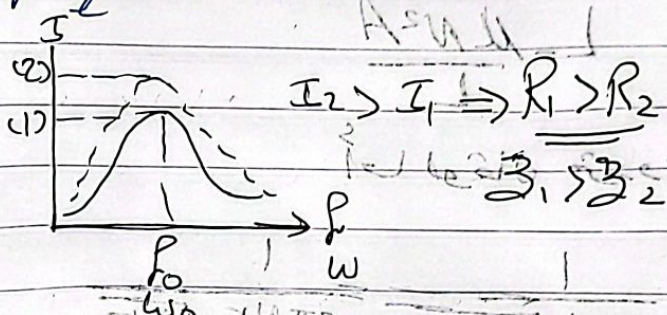 I
(2)
(1)
I₂ > I₁ ⇒ R₁ > R₂
Z₁ > Z₂
f
f₀ ω